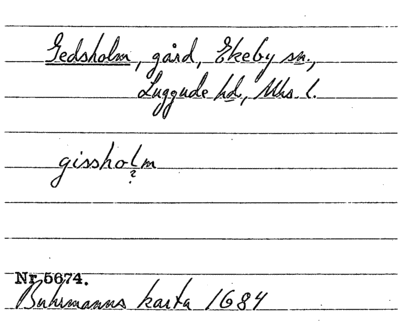 Gedsholm, gård, Ekeby sn.,
Luggude hd, Mhs l.
gissholm
?
Nr 5674.
Buhrmanns karta 1684